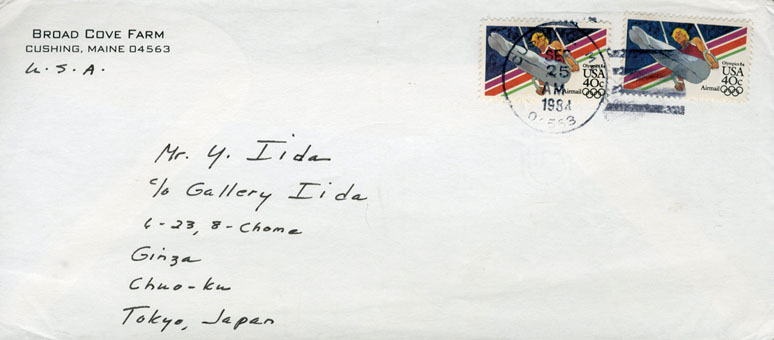 BROAD COVE FARM
CUSHING, MAINE 04563
U.S.A.
SEP
25
AM
1984
04563
Olympics 84
USA
40c
Airmail
Olympics 84
USA
40c
Airmail
Mr. Y. Iida
c/o Gallery Iida
6-23, 8-Chome
Ginza
Chuo-ku
Tokyo, Japan